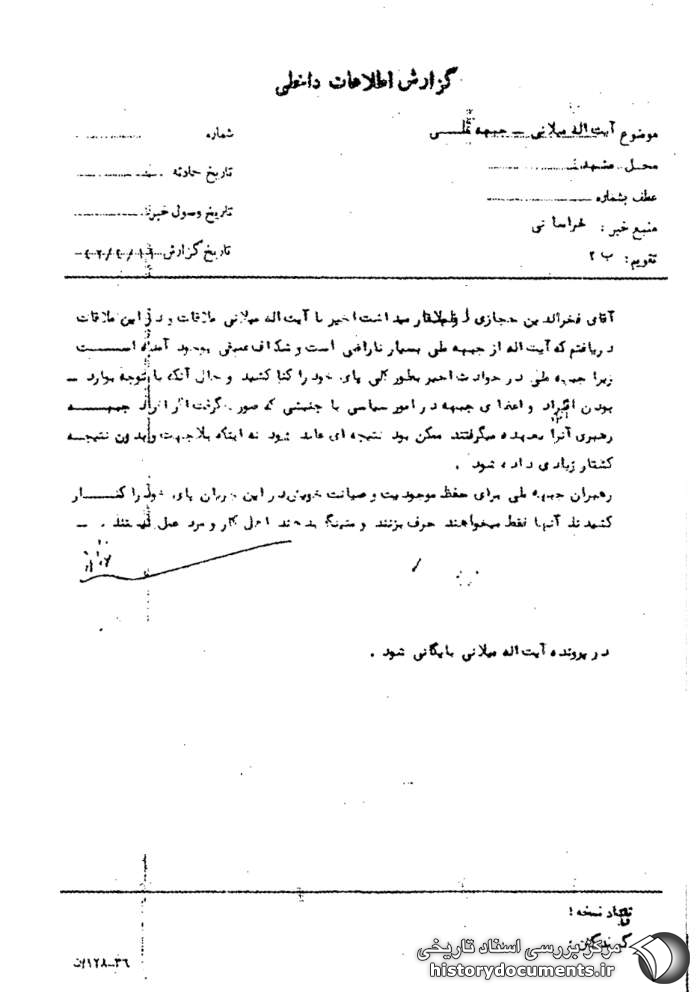 گزارش اطلاعات داخلی
موضوع آیت اله میلانی – جبهه ملی
شماره
محل مشهد
تاریخ حادثه
عطف بشماره
تاریخ وصول خبر
منبع خبر : خراسانی
تاریخ گزارش
تقویم : ب ۲
آقای فخرالدین حجازی اظهار میداشت اخیر با آیت اله میلانی ملاقات و در این ملاقات
دریافتم که آیت اله از جبهه ملی بسیار ناراضی است و شکاف عمیقی بوجود آمده است
زیرا جبهه ملی در حوادث اخیر بطور کلی پای خود را کنا کشید و حال آنکه با توجه بوارد –
بودن افراد و اعضای جبهه در امور سیاسی با جنبشی که صورت گرفت اگر افراد جبهه
رهبری آنرا بعهده میگرفتند ممکن بود نتیجه ای عاید شود نه اینکه بلاجهت و بدون نتیجه
کشتار زیادی داده شود .
رهبران جبهه ملی برای حفظ موجودیت و صیانت خویش در این جریان پای خود را کنار
کشیدند آنها فقط میخواهند حرف بزنند و میتینگ بدهند اهل کار و مرد عمل نیستند . –
در پرونده آیت اله میلانی بایگانی شود .
تعداد نسخه :
گیرندگان :
۳۶–۱۲۸/ت
مرکز بررسی اسناد تاریخی
historydocuments.ir